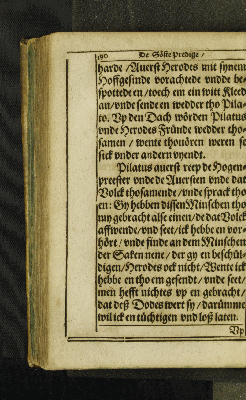 De Söste Predige /
harde / Auerst Herodes mit synem
Hoffgesinde vorachtede vnd be
spottede en / toech em ein witt Kleed
an / vnde sende en wedder tho Pila
to. Vp den Dach wörden Pilatus
vnde Herodes Fründe wedder tho
samen / wente thouören weren se
sick vnder andern vyendt.
Pilatus auerst reep de Hogen
preester vnde de Auersten vnde dat
Volck thosamende / vnde sprack tho
en: Gy hebben dissen Minschen tho
my gebracht alse einen / de dat Volck
affwende / vnd seet / ick hebbe en vor-
hört / vnde finde an dem Minschen
der Saken nene / der gy en beschül-
digen / Herodes ock nicht / Wente ick
hebbe en tho em gesendt / vnde seet /
men hefft nichtes vp en gebracht /
dat deß Dodes wert sy / darümme
wil ick en tüchtigen vnd loß laten.
Vp